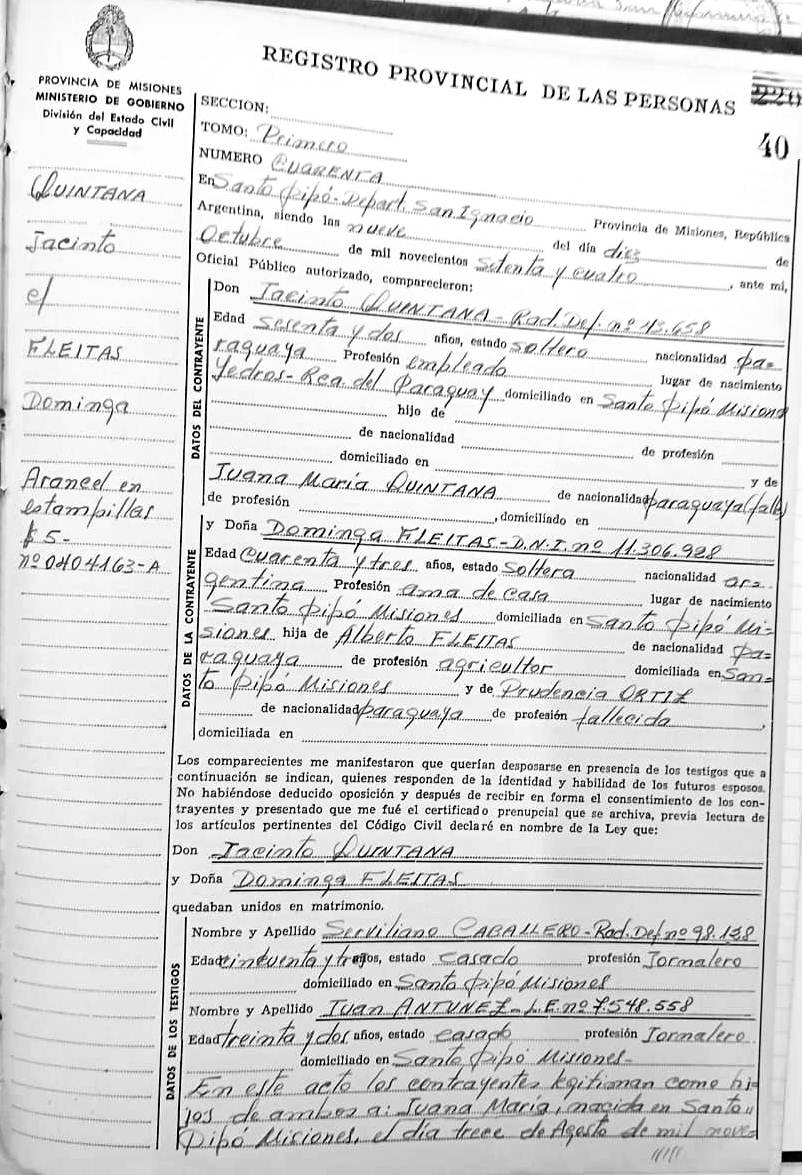 PROVINCIA DE MISIONES
MINISTERIO DE GOBIERNO
División del Estado Civil
y Capacidad
REGISTRO PROVINCIAL DE LAS PERSONAS
220
40
QUINTANA
Jacinto
c/
FLEITAS
Dominga
Arancel en
estampillas
$ 5-
nº 0404163-A
SECCION:
TOMO: Primero
NUMERO CUARENTA
En Santo Pipó-Depart. San Ignacio Provincia de Misiones, República
Argentina, siendo las nueve del día diez de
Octubre de mil novecientos Setenta y Cuatro, ante mi,
Oficial Público autorizado, comparecieron:
DATOS DEL CONTRAYENTE
Don Jacinto QUINTANA- Rad. Def. nº 43.658
Edad sesenta y dos años, estado soltero nacionalidad pa=
raguaya Profesión empleado lugar de nacimiento
Yedros- Rca. del Paraguay domiciliado en Santo Pipó Misiones
hijo de
de nacionalidad de profesión
domiciliado en y de
Juana María QUINTANA de nacionalidad paraguaya (falle)
de profesión , domiciliado en
DATOS DE LA CONTRAYENTE
y Doña Dominga FLEITAS-D.N.I. nº 11.306.928
Edad Cuarenta y tres años, estado Soltera nacionalidad ar=
gentina Profesión ama de casa lugar de nacimiento
Santo Pipó Misiones domiciliada en Santo Pipó Mi=
siones hija de Alberto FLEITAS de nacionalidad pa=
raguaya de profesión agricultor domiciliada en San=
to Pipó Misiones y de Prudencia ORTIZ
de nacionalidad paraguaya de profesión fallecida,
domiciliada en
Los comparecientes me manifestaron que querían desposarse en presencia de los testigos que a
continuación se indican, quienes responden de la identidad y habilidad de los futuros esposos.
No habiéndose deducido oposición y después de recibir en forma el consentimiento de los con-
trayentes y presentado que me fué el certificado prenupcial que se archiva, previa lectura de
los artículos pertinentes del Código Civil declaré en nombre de la Ley que:
Don Jacinto QUINTANA
y Doña Dominga FLEITAS
quedaban unidos en matrimonio.
DATOS DE LOS TESTIGOS
Nombre y Apellido Serviliano CABALLERO-Rad. Def. nº 98.138
Edad cincuenta y tres años, estado Casado profesión Jornalero
domiciliado en Santo Pipó Misiones
Nombre y Apellido Juan ANTUNEZ-L.E. nº 7.548.558
Edad treinta y dos años, estado casado profesión Jornalero
domiciliado en Santo Pipó Misiones-
En este acto los contrayentes legitiman como hi=
jos de ambos a: Juana María, nacida en Santo
Pipó Misiones, el día trece de Agosto de mil nove=